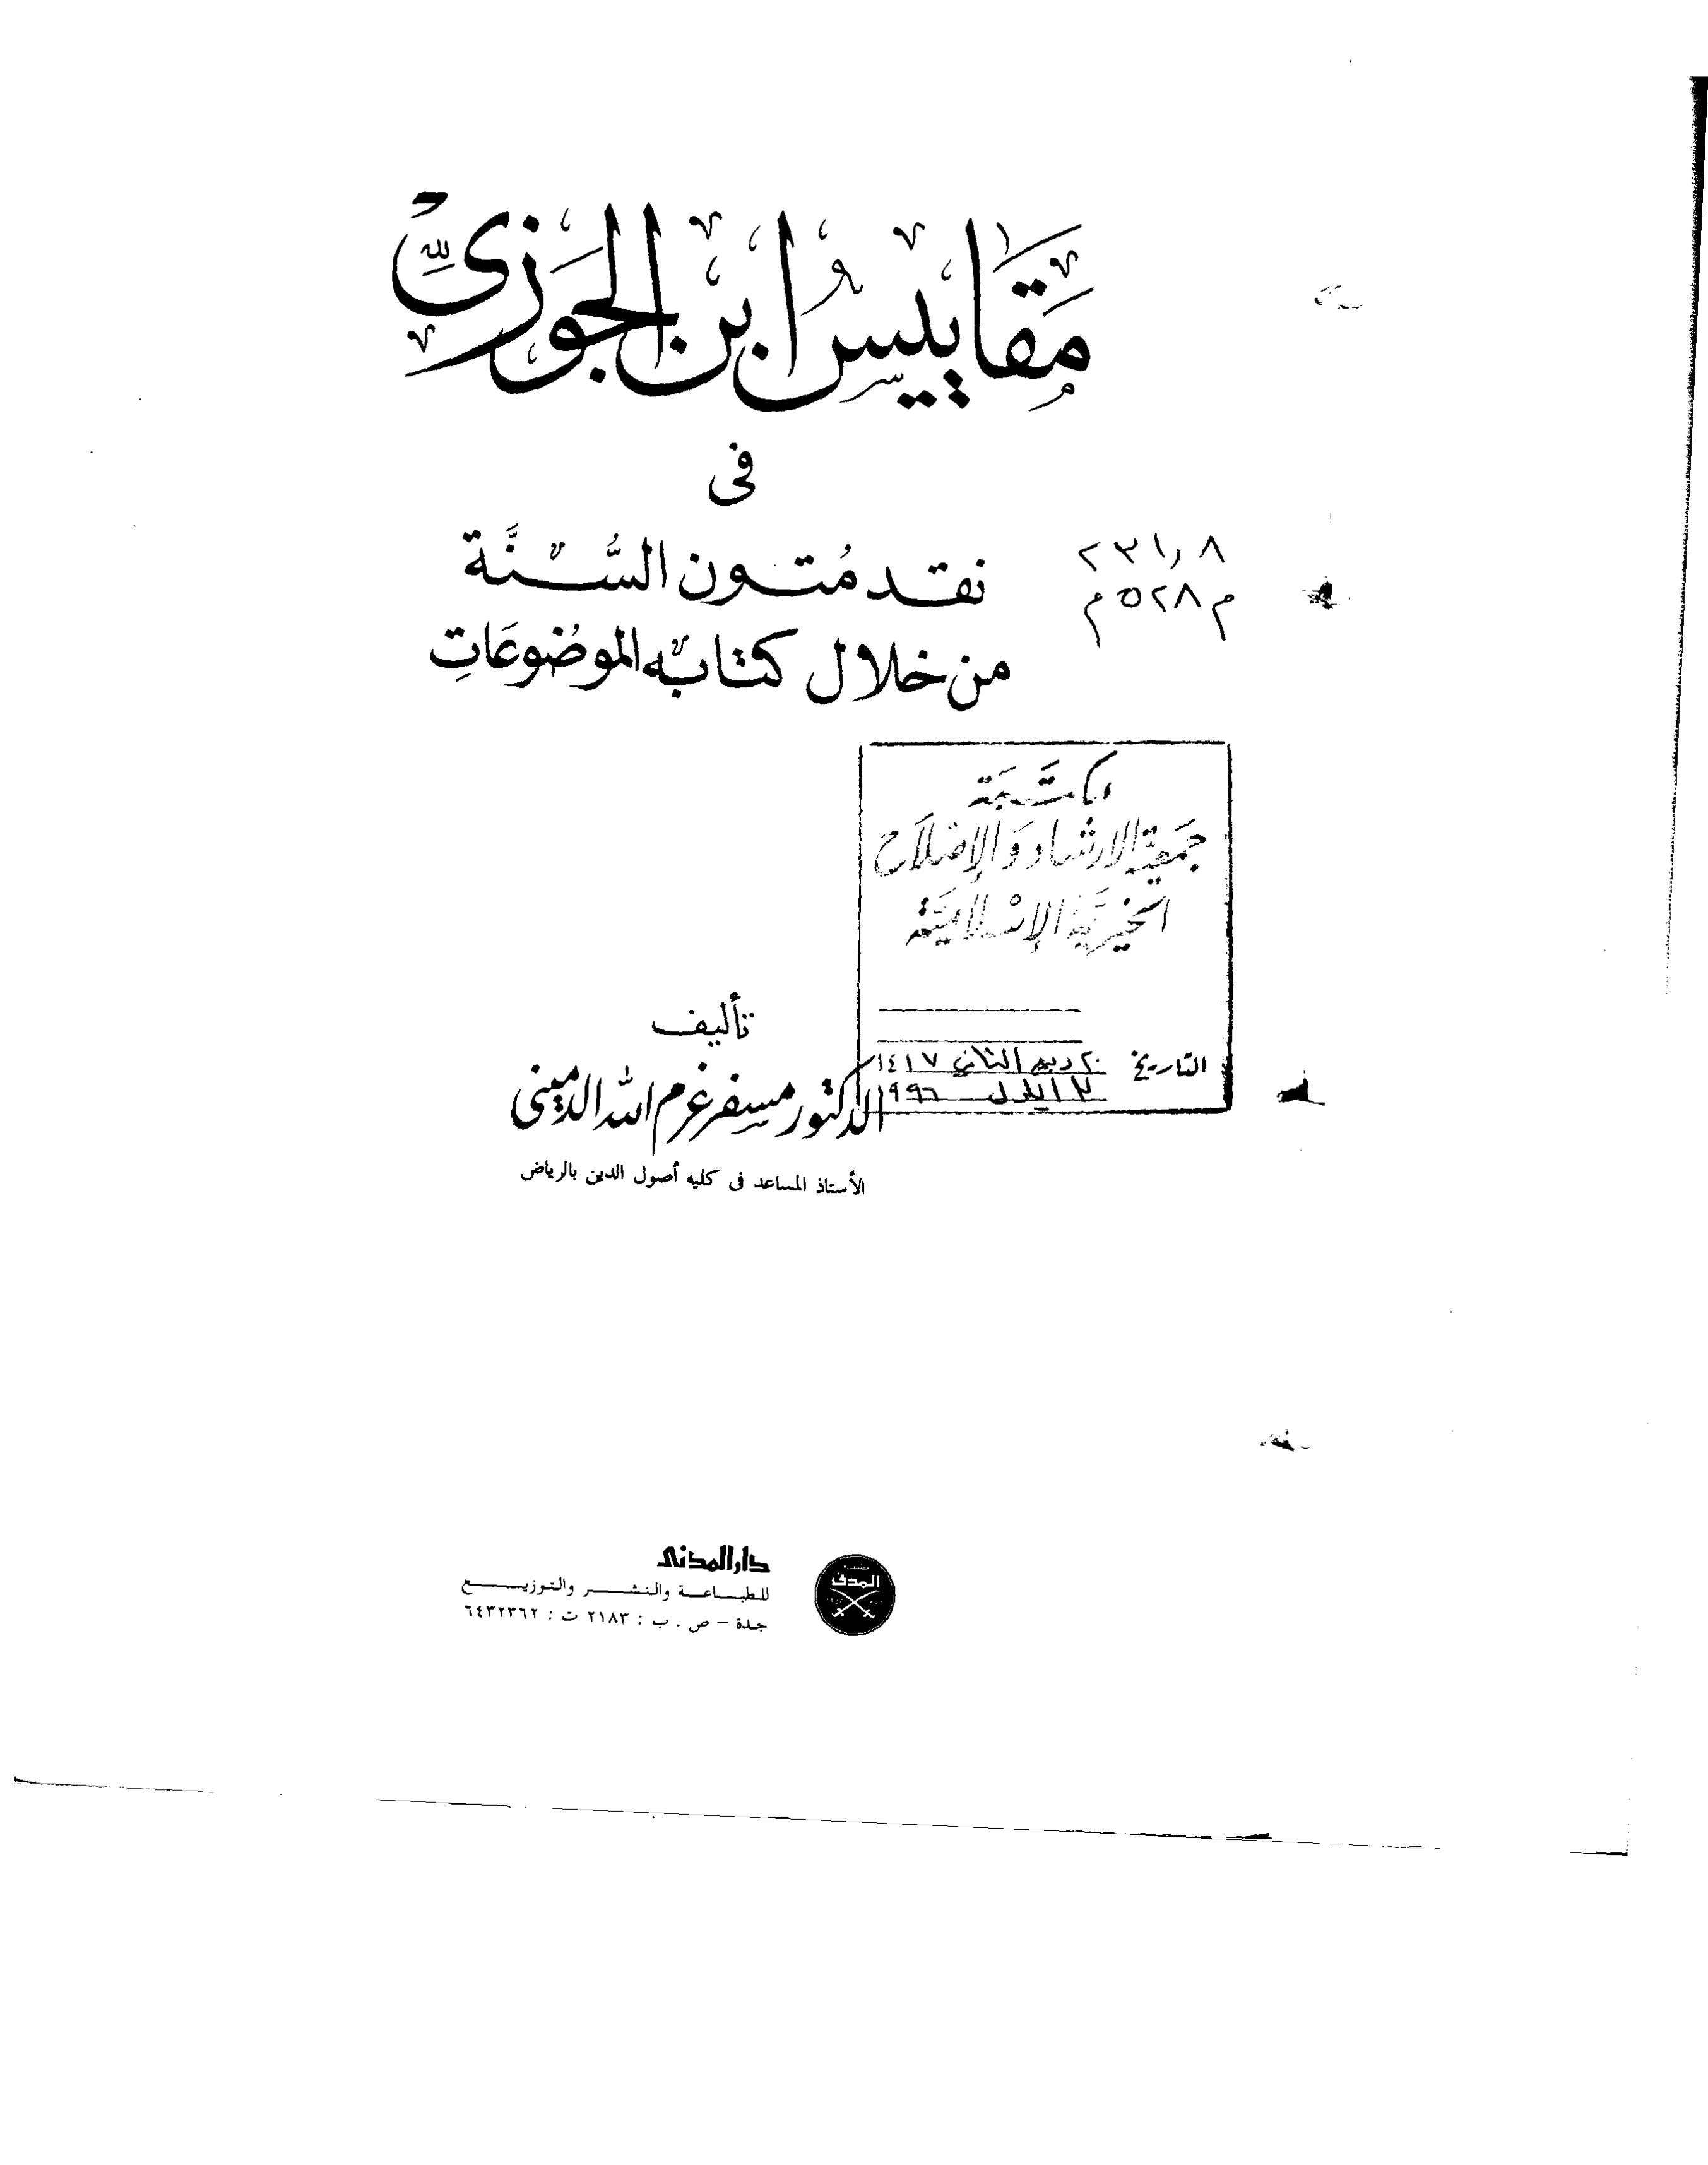 مَقَاييسُ ابن الجَوزيِّ
فى
نقد مُتون السُّنَّة
من خلال كتابه الموضُوعَاتِ
٢٣١٫٨
م ٥٢٨ م
مكتَبَة
جمَعية الارشاد وَالإصْلاَح
الخيريَّة الإسْلاميَّة
التاريخ ٢٠ ربيع الثاني ١٤١٧
أيلول ١٩٩٦
تأليف
الدكتور مسفر غرم الله الدمينى
الأستاذ المساعد فى كليه أصول الدين بالرياض
المدنى
دار المدنى
للطباعة والنشر والتوزيع
جدة – ص . ب : ٢١٨٣ ت : ٦٤٣٢٣٦٢